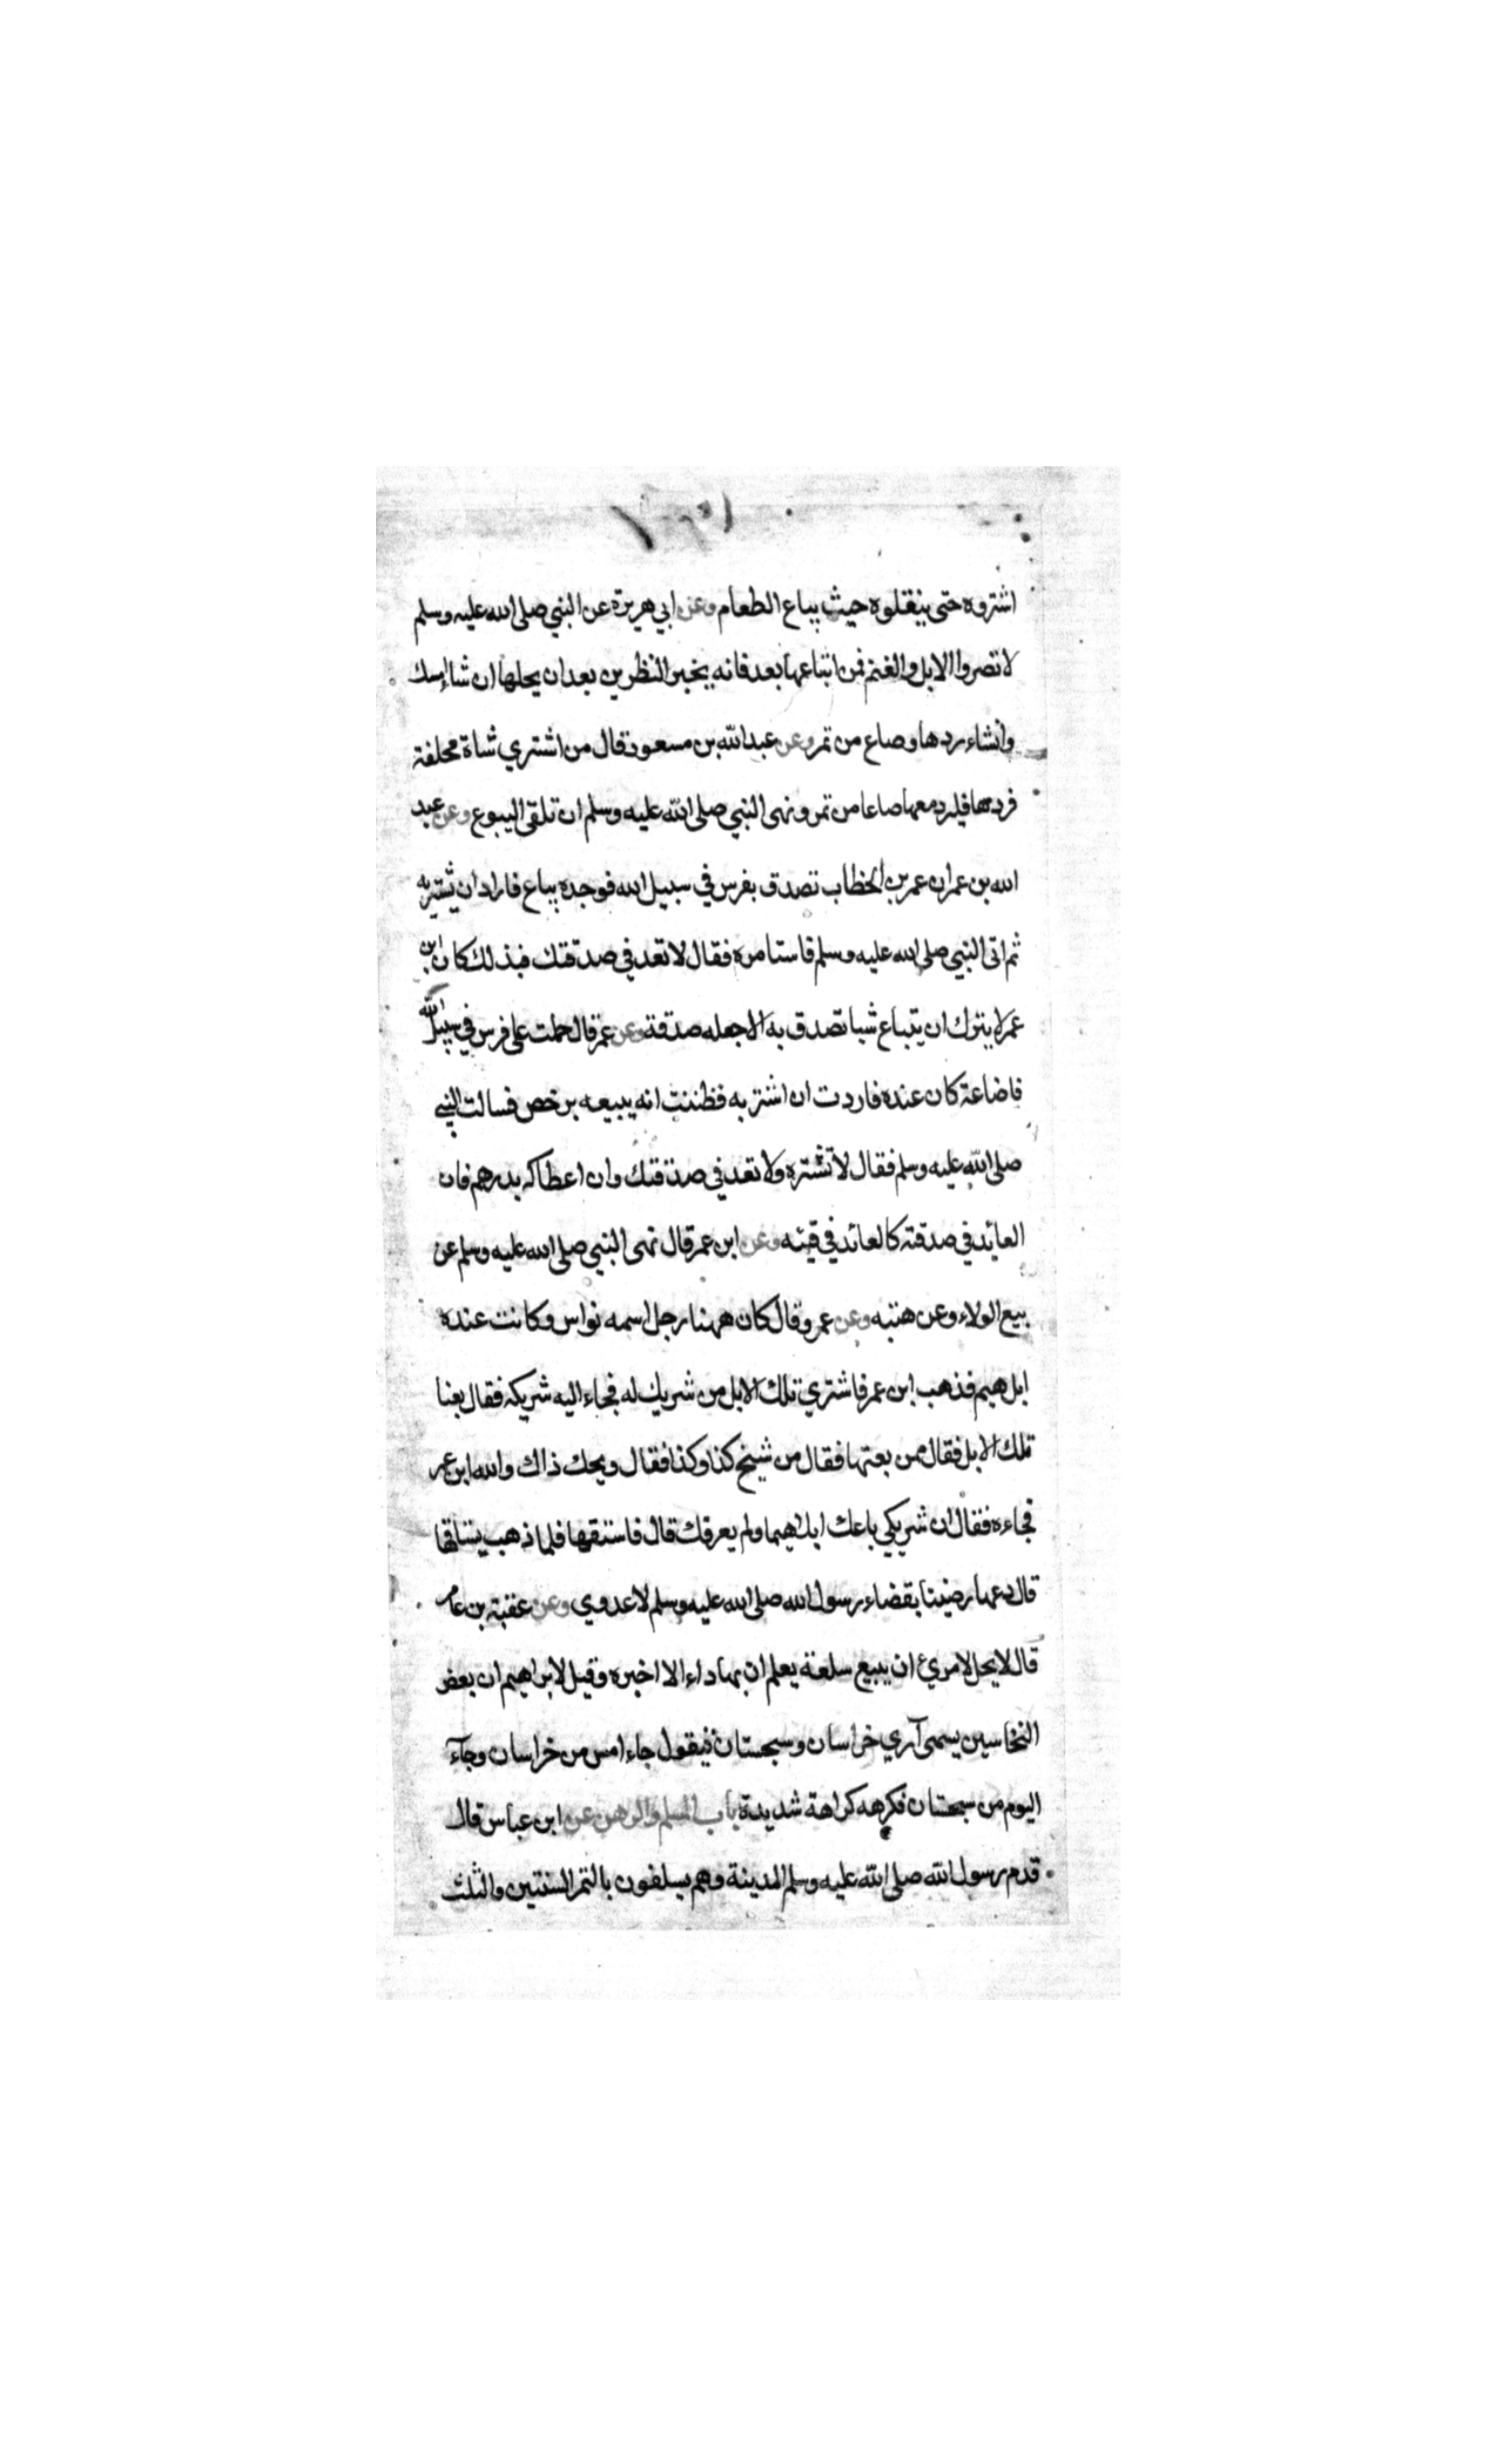 اشتروه حتى ينقلوه حيث يباع الطعام وعن ابي هريرة عن النبي صلى الله عليه وسلم
لا تصروا الابل والغنم فمن ابتاعها بعد فانه بخير النظرين بعد ان يحلبها ان شاء امسك
وانشاء ردها وصاع من تمر وعن عبد الله بن مسعود قال من اشتري شاة محلفة
فردها فليرد معها صاعا من تمر ونهى النبي صلى الله عليه وسلم ان تلقى البيوع وعن عبد
الله بن عمر ان عمر بن الخطاب تصدق بفرس في سبيل الله فوجده يباع فاراد ان يشتريه
ثم اتى النبي صلى الله عليه وسلم فاستامره فقال لا تعد في صدقتك فبذلك كان ابن
عمر لا يترك ان يبتاع شيا تصدق به الا جعله صدقة وعن عمر قال حملت على فرس في سبيل الله
فاضاعة كان عنده فاردت ان اشتريه فظننت انه يبيعه برخص فسالت النبي
صلى الله عليه وسلم فقال لا تشتره ولا تعد في صدقتك وان اعطاكه بدرهم فان
العائد في صدقته كالعائد في قيئه وعن ابن عمر قال نهى النبي صلى الله عليه وسلم عن
بيع الولاء وعن هبته وعن عمرو قال كان ههنا رجل اسمه نواس وكانت عنده
ابل هيم فذهب ابن عمر فاشتري تلك الابل من شريك له فجاء اليه شريكه فقال بعنا
تلك الابل فقال ممن بعتها فقال من شيخ كذا وكذا فقال ويحك ذاك والله ابن عمر
فجاءه فقال ان شريكي باعك ابلا هيما ولم يعرفك قال فاستقها فلما ذهب يستاقها
قال دعها رضينا بقضاء رسول الله صلى الله عليه وسلم لا عدوي وعن عقبة بن عامر
قال لا يحل لامرئ ان يبيع سلعة يعلم ان بها داء الا اخبره وقيل لابراهيم ان بعض
النخاسين يسمى آري خراسان وسجستان فيقول جاء امس من خراسان وجآء
اليوم من سجستان فكرهه كراهة شديدة باب السلم والرهن عن ابن عباس قال
قدم رسول الله صلى الله عليه وسلم المدينة وهم يسلفون بالتمر السنتين والثلث